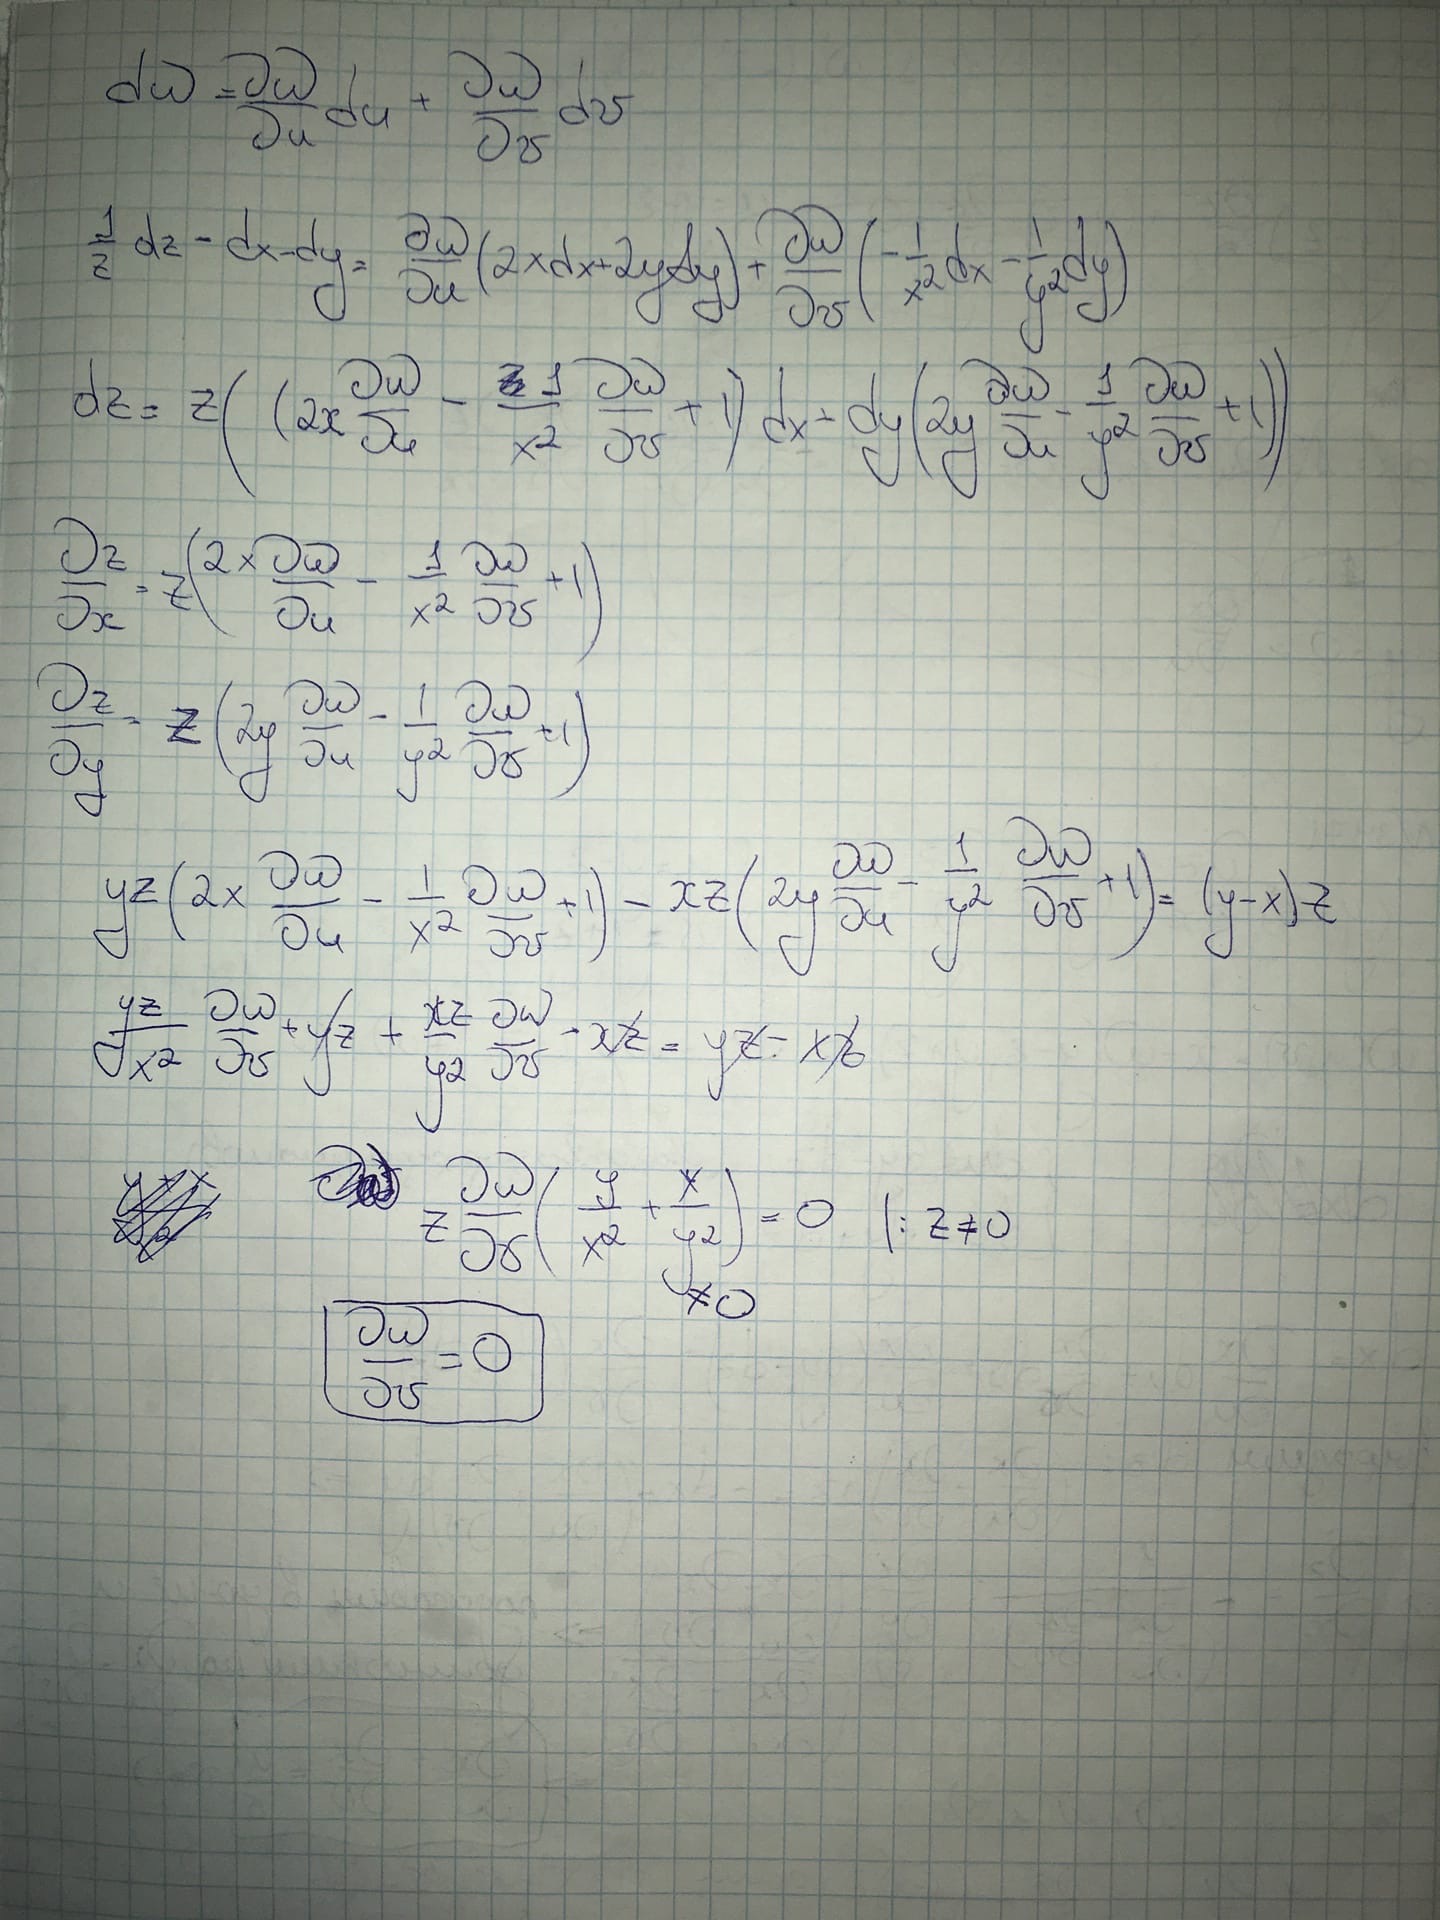 dw = ∂w/∂u du + ∂w/∂v dv
1/z dz - dx - dy = ∂w/∂u (2xdx + 2ydy) + ∂w/∂v (-1/x² dx - 1/y² dy)
dz = z((2x ∂w/∂u - 1/x² ∂w/∂v + 1) dx + dy (2y ∂w/∂u - 1/y² ∂w/∂v + 1))
∂z/∂x = z(2x ∂w/∂u - 1/x² ∂w/∂v + 1)
∂z/∂y = z(2y ∂w/∂u - 1/y² ∂w/∂v + 1)
yz(2x ∂w/∂u - 1/x² ∂w/∂v + 1) - xz(2y ∂w/∂u - 1/y² ∂w/∂v + 1) = (y-x)z
yz/x² ∂w/∂v + yz + xz/y² ∂w/∂v - xz = yz - xz
z ∂w/∂v (y/x² + x/y²) = 0 |: z ≠ 0
≠ 0
∂w/∂v = 0